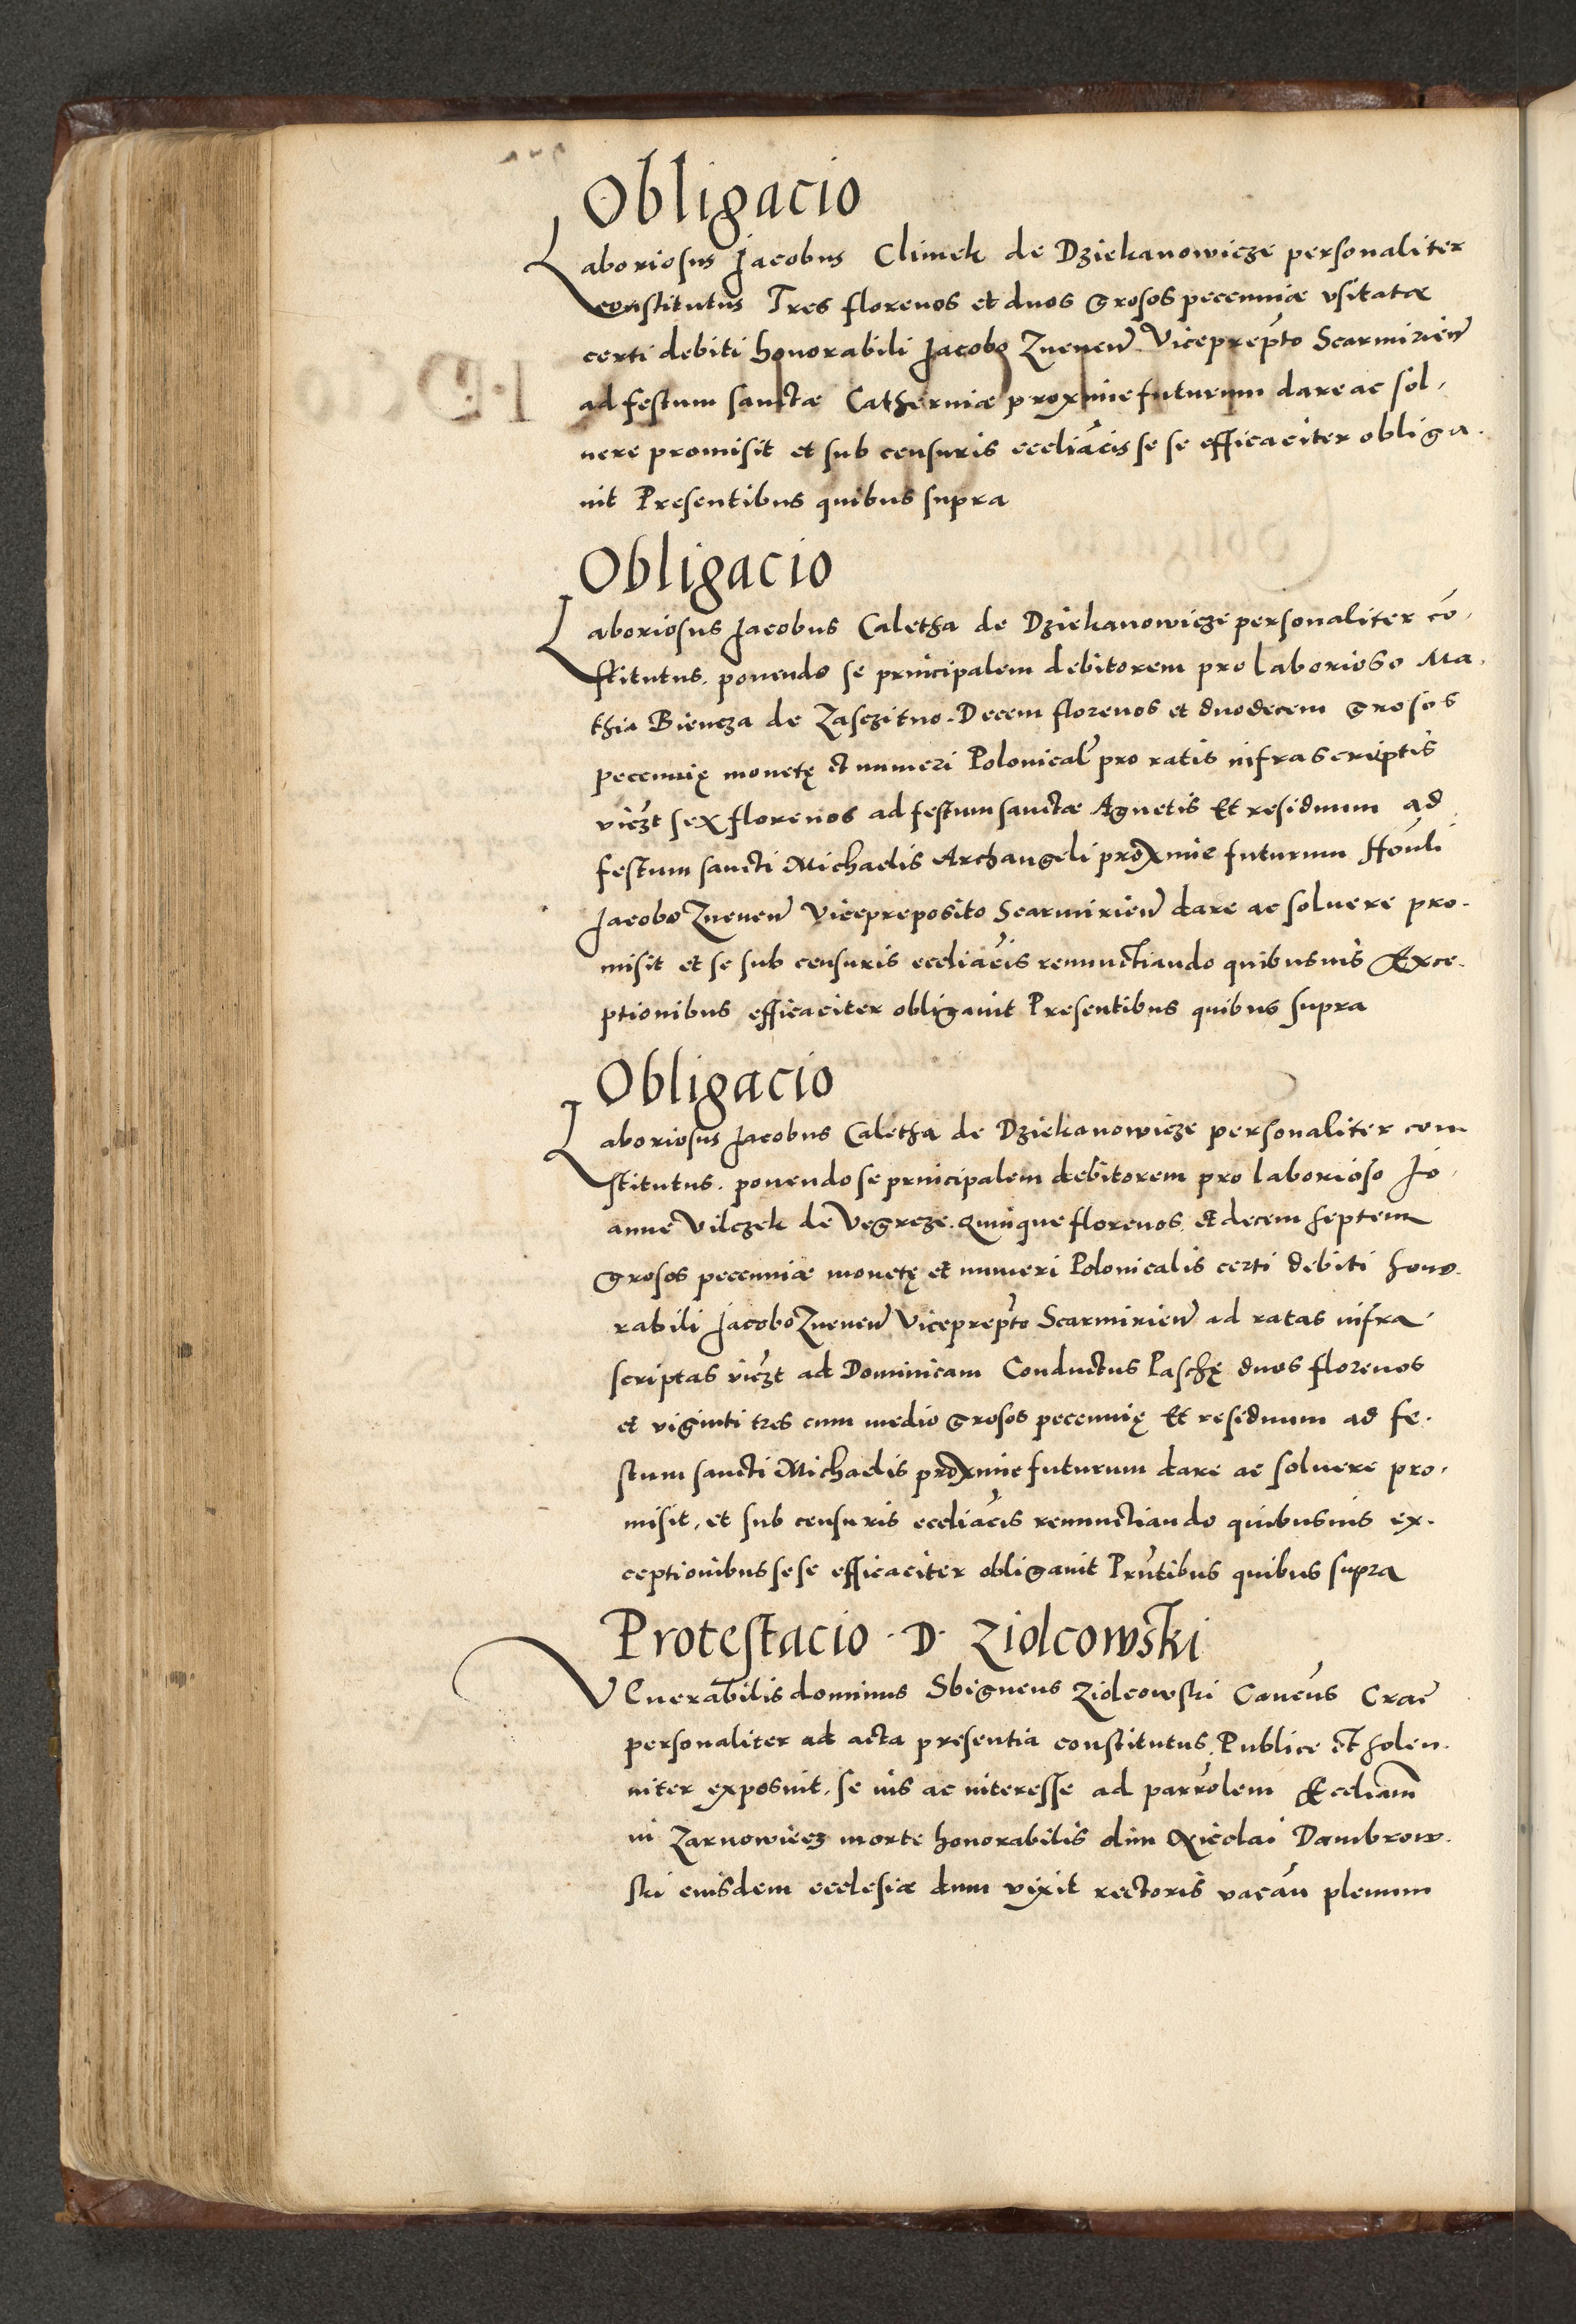 Obligacio
Laboriosus Jacobus Climek de Dziekanowicze personaliter
constitutus Tres florenos et duos grosos pecenniæ vsitatæ
certi debiti honorabili Jacobo Zneneñ Viceprep̃to Scarmirieñ
ad festum sanctæ Catherinæ proxime futurum dare ac sol-
uere promisit et sub censuris eccliãcis se se efficaciter obliga-
uit Presentibus quibus supra
Obligacio
Laboriosus Jacobus Caletha de Dziekanowicze personaliter cõ-
stitutus. ponendo se principalem debitorem pro laborioso Ma-
thia Biencza de Zasczitno. Decem florenos et duodecem grosos
pecennię monetę et numeri Polonical̃ pro ratis infrascriptis
vicz̃t sex florenos ad festum sanctæ Agnetis Et residuum ad
festum sancti Michaelis Archangeli proxime futurum Hoñli
Jacobo Zneneñ Vicepreposito Scarmirieñ dare ac soluere pro-
misit et se sub censuris eccliãcis renunctiando quibusuis Exce-
ptionibus efficaciter obligauit Presentibus quibus supra
Obligacio
Laboriosus Jacobus Caletha de Dziekanowicze personaliter con
stitutus. ponendo se principalem debitorem pro laborioso Jo-
anne Vilczek de Vegrcze. Quinque florenos et decem septem
grosos pecenniæ monetę et numeri Polonicalis certi debiti hono-
rabili Jacobo Zneneñ Viceprep̃to Scarmirieñ ad ratas infra-
scriptas vicz̃t ad Dominicam Conductus Paschę duos florenos
et viginti tres cum medio grosos pecennię Et residuum ad fe-
stum sancti Michaelis proxime futurum dare ac soluere pro-
misit, et sub censuris eccliãcis renunctiando quibusuis ex-
ceptionibus sese efficaciter obligauit Prñtibus quibus supra
Protestacio D. Ziolcowski
VEnerabilis dominus Sbigneus Ziolcowski Canc̃us Crac̃
personaliter ad acta presentia constitutus. Publice et solen-
niter exposuit, se ius ac interesse ad parr̃olem Eccliam̃
in Zarnowiecz morte honorabilis olim Nicolai Dambrow-
ski eiusdem ecclesiæ dum vixit rectoris vacañ plenum